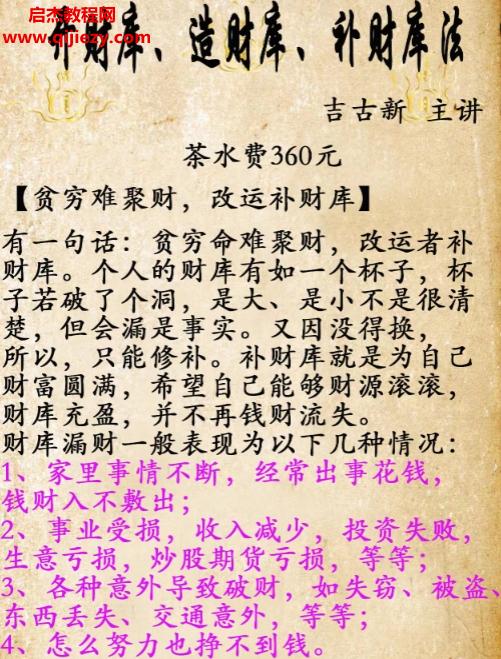 启杰教程网
www.qijiezy.com
开财库、造财库、补财库法
吉古新 主讲
茶水费360元
【贫穷难聚财，改运补财库】
有一句话：贫穷命难聚财，改运者补
财库。个人的财库有如一个杯子，杯
子若破了个洞，是大、是小不是很清
楚，但会漏是事实。又因没得换，
所以，只能修补。补财库就是为自己
财富圆满，希望自己能够财源滚滚，
财库充盈，并不再钱财流失。
财库漏财一般表现为以下几种情况：
1、家里事情不断，经常出事花钱，
钱财入不敷出；
2、事业受损，收入减少，投资失败，
生意亏损，炒股期货亏损，等等；
3、各种意外导致破财，如失窃、被盗、
东西丢失、交通意外，等等；
4、怎么努力也挣不到钱。